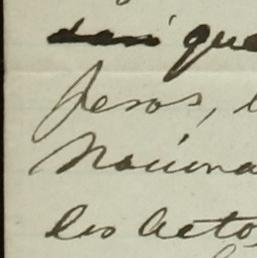 que
pesos,
Naciona
los actos